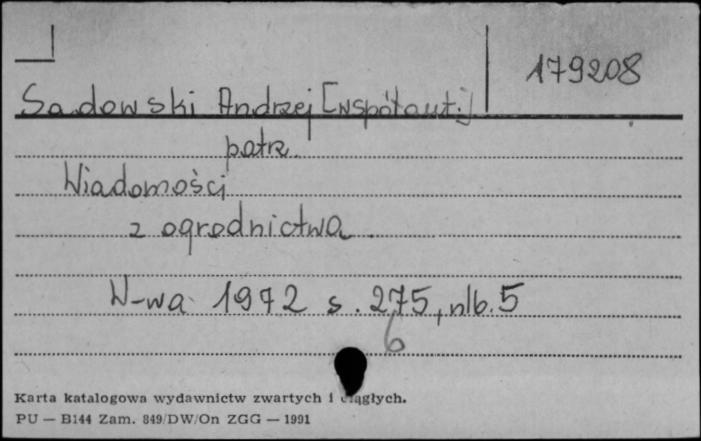 179208
Sadowski Andrzej [współaut.]
patrz.
Wiadomości
z ogrodnictwa.
W-wa 1972 s. 275, nlb. 5
6
Karta katalogowa wydawnictw zwartych i ciągłych.
PU — B144 Zam. 849/DW/On ZGG — 1991